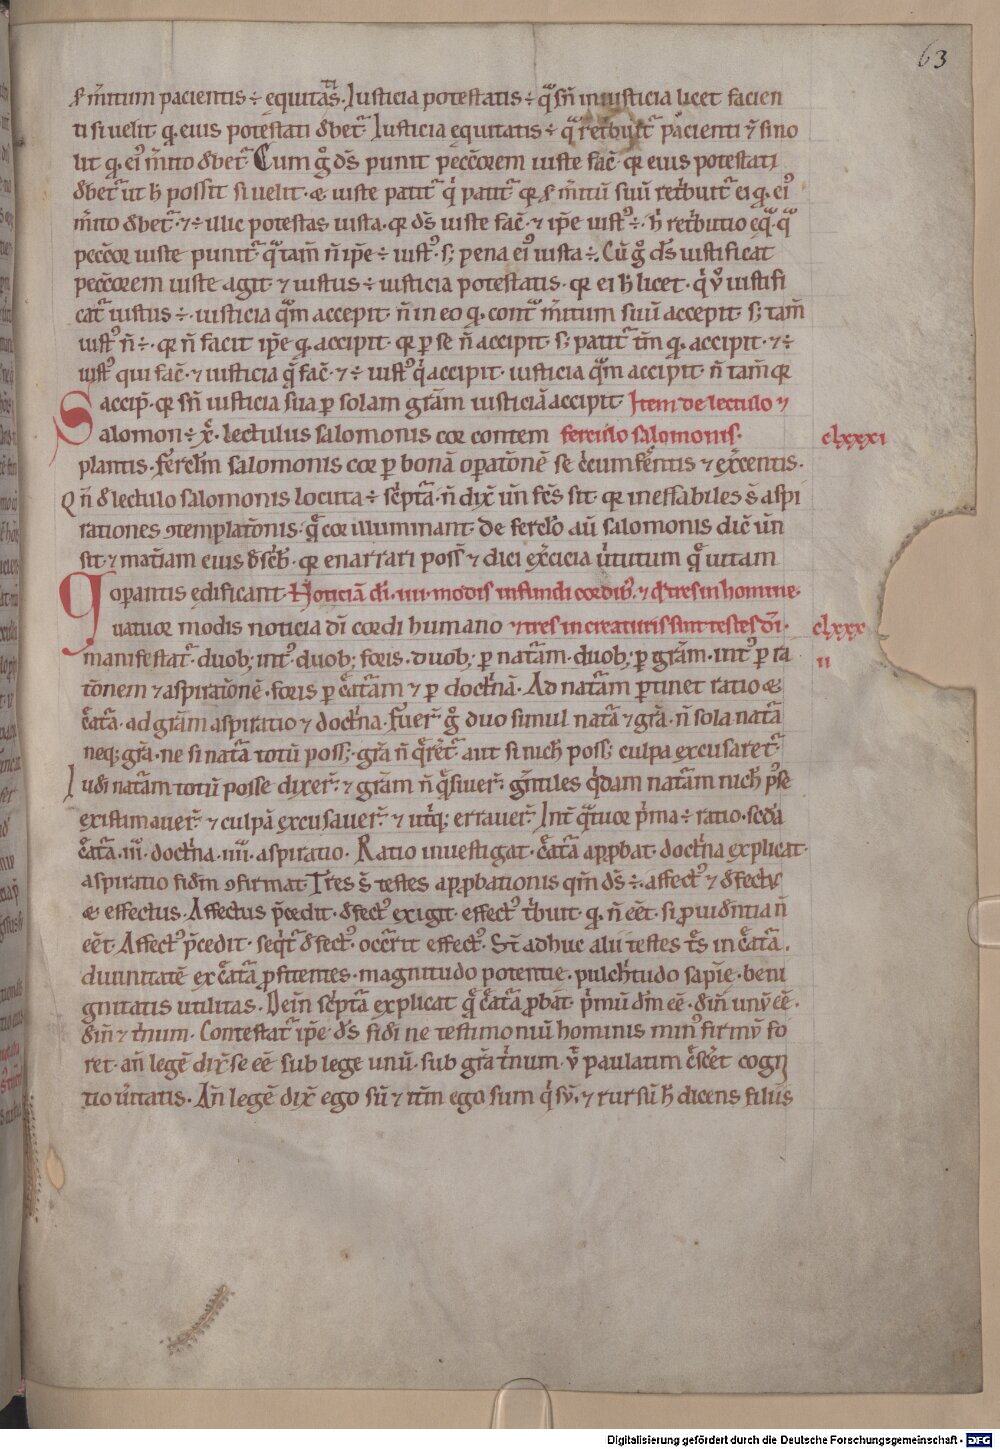 63
ẜ m̃itum pacientis ÷ equitatis. Iusticia potestatis ÷ qͣ sñ iniusticia licet facien
ti si uelit. q̨ eius potestati debet᷑ Iusticia equitatis ÷ qͣ retͥbuit᷑ pacienti ⁊̄ si no
lit q̨ ei᷒ m̃ito debet᷑. Cum gͦ ds̄ punit peccͨorem iuste fac̄. qꝛ eius potestati
debet᷑ ut h̄ possit si uelit. & iuste patit᷑ qͥ patit᷑ qꝛ ẜ m̃itū suū retͥbuit᷑ ei q̨ ei᷒
m̃ito debet᷑. ⁊ ÷ illic potestas iusta. qꝛ ds̄ iuste fac̄. ⁊ ip̄e iust᷒ ÷. h̄ retͥbutio eqͣ. qͣ
pecc̄or iuste punit᷑. qͣtam̄ n̄ ip̄e ÷ iust᷒. sꝫ pena ei᷒ iusta ÷. Cū gͦ ds̄ iustificat
pecc̄orem iuste agit ⁊ iustus ÷ iusticia potestatis. qꝛ ei h̄ licet. qͥ u̾ iustifi
cat᷑ iustus ÷. iusticia qͣm accepit. n̄ in eo q̨ contͣ m̃itum suū accepit. sꝫ tam̄
iust᷒ n̄ ÷. qꝛ n̄ facit ip̄e q̨ accipit. qꝛ ꝑ se n̄ accipit. sꝫ patit᷑ tm̄ q̨ accipit. ⁊ ÷
iust᷒ qui fac̄. ⁊ iusticia q̄ fac̄. ⁊ ÷ iust᷒ qͥ accipit. iusticia qͣm accipit. n̄ tam̄ qꝛ
accip̄. qꝛ sn̄ iusticia sua ꝑ solam grām iusticiā accipit Item de lectulo ⁊
Salomon ÷ xp̄. lectulus salomonis cor contem ferculo salomonis. clxxxi
plantis. fercl̄m salomonis cor ꝑ bonā oꝑatōnē se cͥcumfe᷑ntis ⁊ ex᷑centis.
Qn̄ de lectulo salomonis locuta ÷ sc̄pta᷑. n̄ dix᷑ un̄ fc̄s sit. qꝛ ineffabiles s̄ aspi
rationes ꝯtemplatōnis. q̄ cor illuminant. de fercl̄o au̅ salomonis dic̄ un̄
sit. ⁊ mat᷑iam eius desc͛b̄. qꝛ enarrari poss̄ ⁊ dici ex᷑cicia u᷑tutum q̄ uitam
oꝑantis edificant. Noticiā dī. iiii. modis infundi cordib᷒. ⁊ qͦ tres in homine
Quatuor modis noticia dī cordi humano ⁊ tres in creaturis sunt testes dī. clxxx
manifestat᷑. duobꝫ int᷒. duobꝫ foris. duobꝫ ꝑ nat᷑am. duobꝫ ꝑ grām. int᷒ ꝑ ra ii
tōnem ⁊ aspiratōnē. foris ꝑ c͛at᷑am ⁊ ꝑ doctͥnā. Ad nat᷑am ꝑtinet ratio &
c͛at᷑a. ad grām aspiratio ⁊ doctͥna. fuer̄ gͦ duo simul nat᷑a ⁊ grā. n̄ sola nat᷑a
neqꝫ grā. ne si nat᷑a totū possꝫ. grā n̄ q᷑ret᷑. aut si nich̄ possꝫ culpa excusaret᷑.
Iudi nat᷑am totū posse dixer̄. ⁊ grām n̄ qͣsiuer̄. gn̄tiles qͥdam nat᷑am nich̄ posse
existimauer̄. ⁊ culpā excusauer̄. ⁊ utͥqꝫ errauer̄. Int᷑ qͣtuor pͥma ÷ ratio. sed̄a
c͛at᷑a. iii. doctͥna. iiii. aspiratio. Ratio inuestigat. c͛at᷑a apꝓbat. doctͥna explicat.
aspiratio fidm̄ ꝯfirmat. Tres s̄ testes apꝓbationis qm̄ ds̄ ÷. affect᷒ ⁊ defect᷒
& effectus. Affectus p̄cedit. defect᷒ exigit. effect᷒ tͥbuit. q̨ n̄ eēt. si ꝓuidn̄tia n̄
eēt. Affect᷒ p̄cedit. seqͥt᷑ defect᷒. occ᷑rit effect᷒. St̄ adhuc alii testes tͤs in c͛at᷑a.
diuinitatē ex c͛at᷑a ꝓfitentes. magnitudo potentie. pulchͥtudo sapīe. beni
gnitatis utilitas. Dein̄ sc͛pt᷑a explicat q̄ c͛at᷑a ꝓbat. pͥmū dm̄ eē. dein̄ unū eē.
dein̄ ⁊ tͥnum. Contestat᷑ ip̄e ds̄ fidi ne testimoniū hominis min᷒ firmū fo
ret. an̄ legē dix᷑ se eē sub lege unū. sub grā tͥnum. u̾ paulatim c͛sc᷑et cogn
tio u᷑itatis. An̄ legē dix᷑ ego sū ⁊ itm̄ ego sum qͥ sū. ⁊ rursū h̄ dicens filius
Digitalisierung gefördert durch die Deutsche Forschungsgemeinschaft - DFG